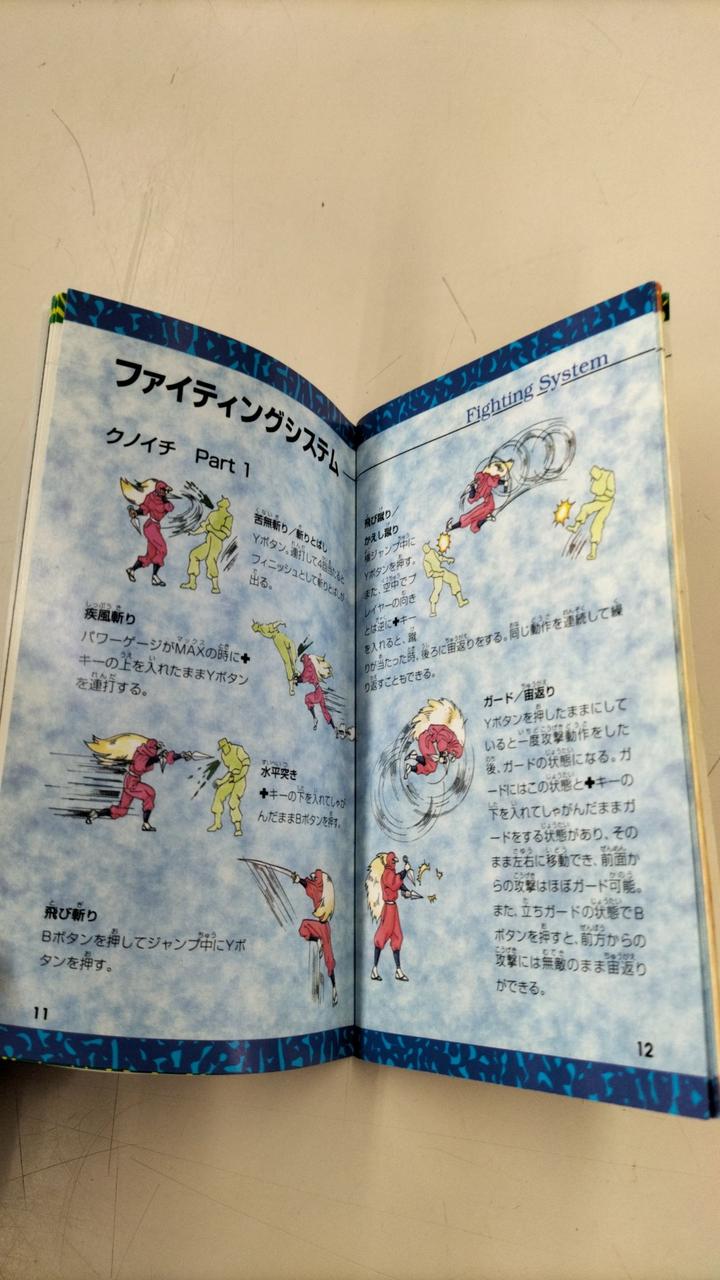 ファイティングシステム
クノイチ Part 1
苦無斬り/斬りとばし
Yボタン。連打して4回当たると
フィニッシュとして斬りとばしが
出る。
疾風斬り
パワーゲージがMAXの時に✚
キーの上を入れたままYボタン
を連打する。
水平突き
✚キーの下を入れてしゃが
んだままBボタンを押す。
飛び斬り
Bボタンを押してジャンプ中にYボ
タンを押す。
11
Fighting System
飛び蹴り/
かえし蹴り
ジャンプ中に
Yボタンを押す。
また、空中でプ
レイヤーの向き
とは逆に✚キー
を入れると、蹴
りが当たった時、後ろに宙返りをする。同じ動作を連続して繰
り返すこともできる。
ガード/宙返り
Yボタンを押したままにして
いると一度攻撃動作をした
後、ガードの状態になる。ガ
ードにはこの状態と✚キーの
下を入れてしゃがんだままガ
ードをする状態があり、その
まま左右に移動でき、前面か
らの攻撃はほぼガード可能。
また、立ちガードの状態でB
ボタンを押すと、前方からの
攻撃には無敵のまま宙返り
ができる。
12